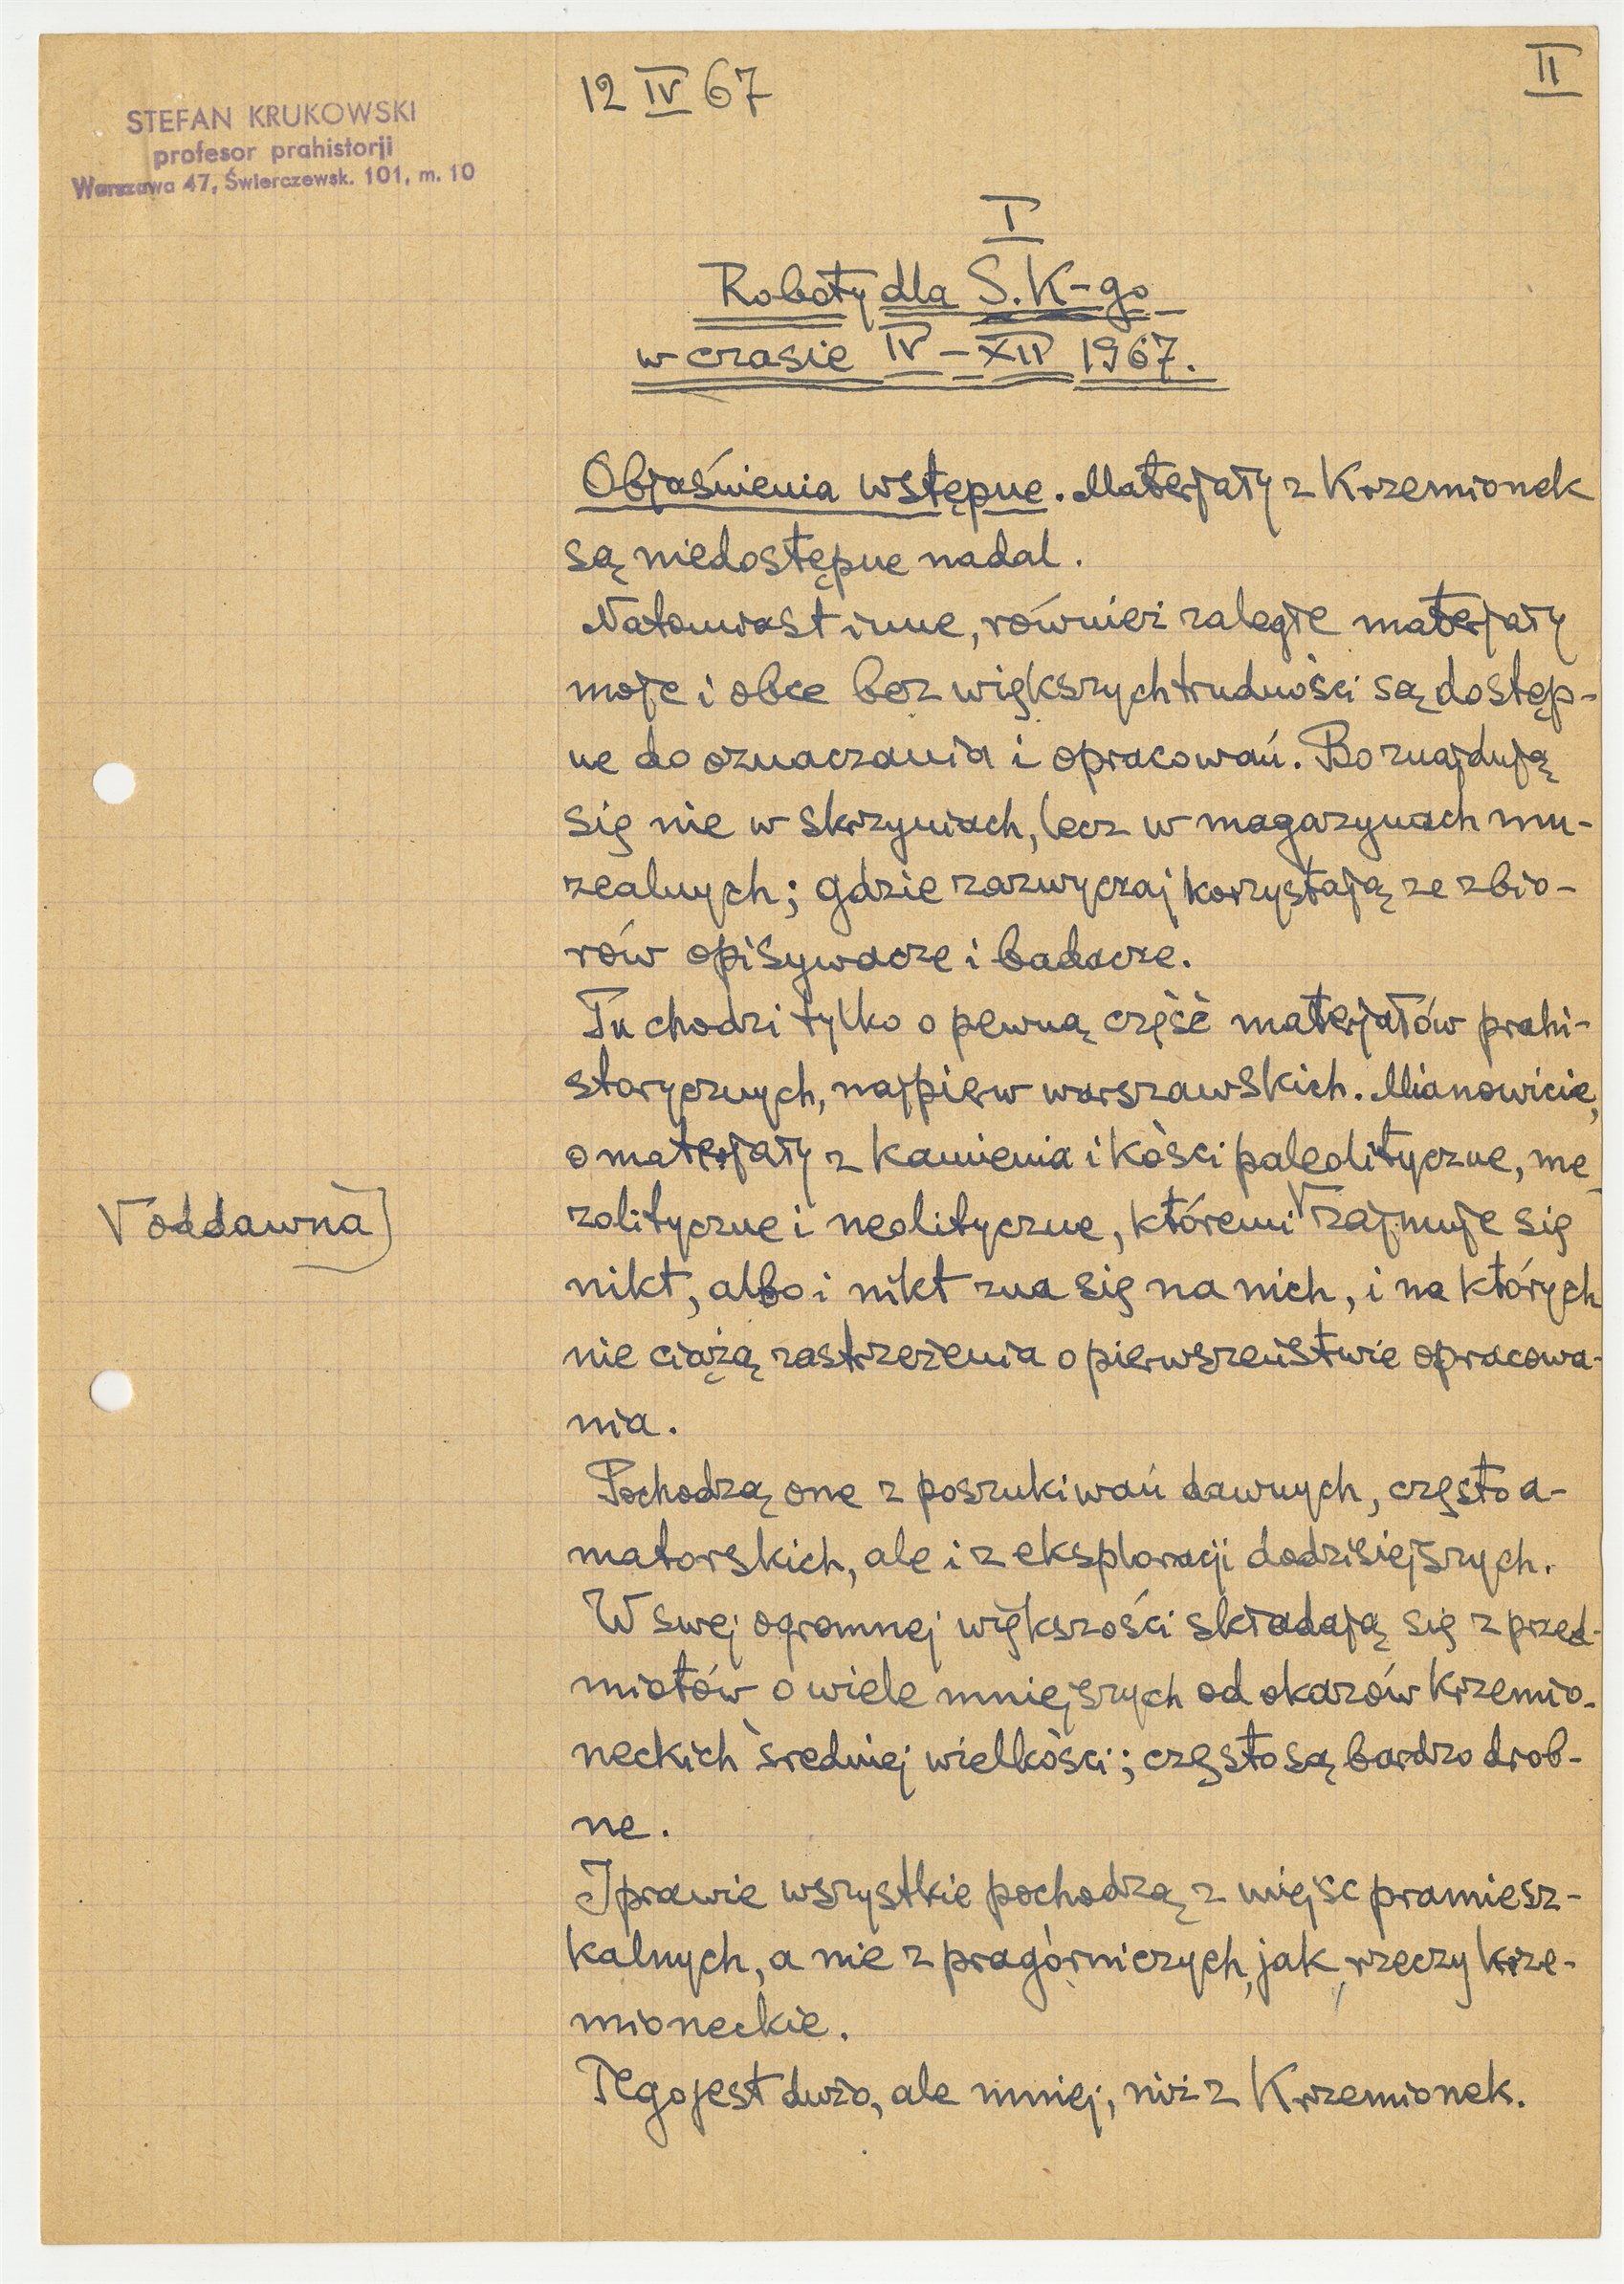 STEFAN KRUKOWSKI
profesor prahistorji
Warszawa 47, Świerczewsk. 101, m. 10
12 IV 67
II
I
Roboty dla S. K-go
w czasie IV – XII 1967.
Objaśnienia wstępne. Materjały z Krzemionek
są niedostępne nadal.
Natomiast inne, również zaległe materjały
moje i obce bez większych trudności są dostęp-
ne do oznaczania i opracowań. Bo znajdują
się nie w skrzyniach, lecz w magazynach mu-
zealnych; gdzie zazwyczaj korzystają ze zbio-
rów opisywacze i badacze.
Tu chodzi tylko o pewną część materjałów prahi-
storycznych, najpierw warszawskich. Mianowicie,
o materjały z kamienia i kości paleolityczne, me-
zolityczne i neolityczne, któremi √ zajmuje się
√ oddawna]
nikt, albo i nikt zna się na nich, i na których
nie ciążą zastrzeżenia o pierwszeństwie opracowa-
nia.
Pochodzą one z poszukiwań dawnych, często a-
matorskich, ale i z eksploracji dodzisiejszych.
W swej ogromnej większości składają się z przed-
miotów o wiele mniejszych od okazów krzemio-
neckich średniej wielkości; często są bardzo drob-
ne.
I prawie wszystkie pochodzą z miejsc pramiesz-
kalnych, a nie z pragórniczych, jak rzeczy krze-
mioneckie.
Tego jest dużo, ale mniej, niż z Krzemionek.